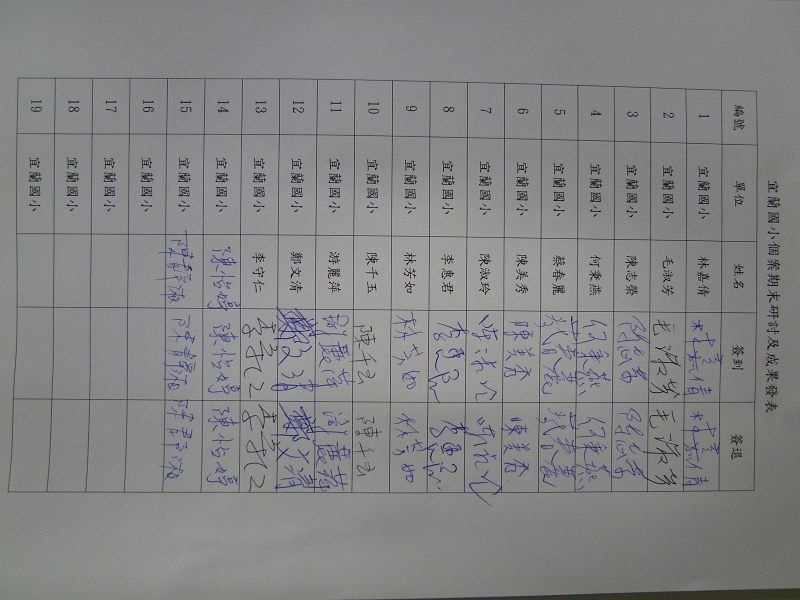 宜蘭國小個案期末研討及成果發表
編號 單位 姓名 簽到 簽退
1 宜蘭國小 林嘉倩 林嘉倩 林嘉倩
2 宜蘭國小 毛淑芳 毛淑芳 毛淑芳
3 宜蘭國小 陳志榮 陳志榮 陳志榮
4 宜蘭國小 何秉燕 何秉燕 何秉燕
5 宜蘭國小 蔡春麗 蔡春麗 蔡春麗
6 宜蘭國小 陳美秀 陳美秀 陳美秀
7 宜蘭國小 陳淑玲 陳淑玲 陳淑玲
8 宜蘭國小 李惠君 李惠君 李惠君
9 宜蘭國小 林芳如 林芳如 林芳如
10 宜蘭國小 陳千玉 陳千玉 陳千玉
11 宜蘭國小 游麗萍 游麗萍 游麗萍
12 宜蘭國小 鄭文清 鄭文清 鄭文清
13 宜蘭國小 李守仁 李守仁 李守仁
14 宜蘭國小 陳怡婷 陳怡婷 陳怡婷
15 宜蘭國小 陳靜淑 陳靜淑 陳靜淑
16 宜蘭國小
17 宜蘭國小
18 宜蘭國小
19 宜蘭國小